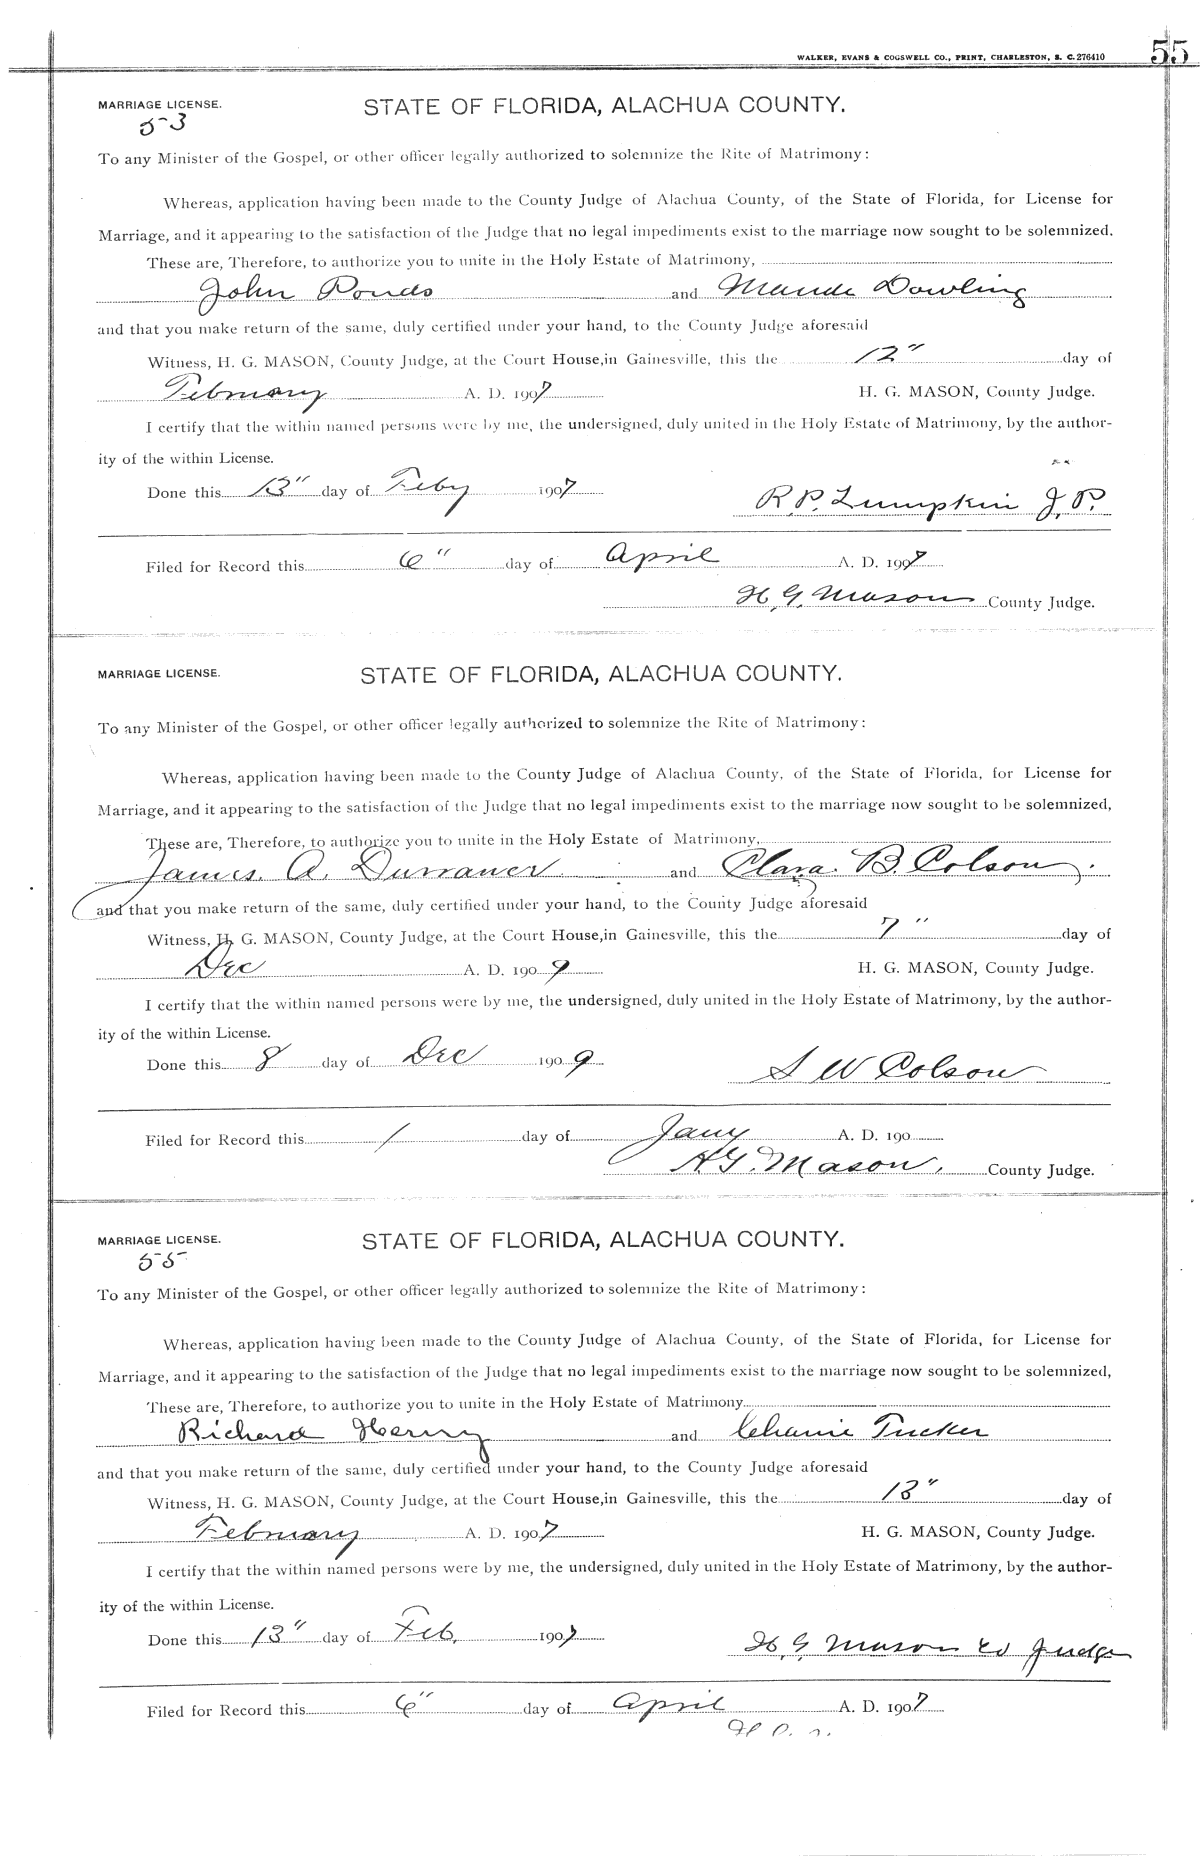 WALKER, EVANS & COGSWELL CO., PRINT, CHARLESTON, S. C. 276410
55
MARRIAGE LICENSE. STATE OF FLORIDA, ALACHUA COUNTY.
53
To any Minister of the Gospel, or other officer legally authorized to solemnize the Rite of Matrimony:
Whereas, application having been made to the County Judge of Alachua County, of the State of Florida, for License for
Marriage, and it appearing to the satisfaction of the Judge that no legal impediments exist to the marriage now sought to be solemnized.
These are, Therefore, to authorize you to unite in the Holy Estate of Matrimony,
John Ponds and Maude Dowling
and that you make return of the same, duly certified under your hand, to the County Judge aforesaid
Witness, H. G. MASON, County Judge, at the Court House, in Gainesville, this the 12" day of
February A. D. 1907 H. G. MASON, County Judge.
I certify that the within named persons were by me, the undersigned, duly united in the Holy Estate of Matrimony, by the author-
ity of the within License.
Done this 13" day of Feby 1907
R. P. Lumpkin J. P.
Filed for Record this 6" day of April A. D. 1907
H. G. Mason County Judge.
MARRIAGE LICENSE. STATE OF FLORIDA, ALACHUA COUNTY.
To any Minister of the Gospel, or other officer legally authorized to solemnize the Rite of Matrimony:
Whereas, application having been made to the County Judge of Alachua County, of the State of Florida, for License for
Marriage, and it appearing to the satisfaction of the Judge that no legal impediments exist to the marriage now sought to be solemnized,
These are, Therefore, to authorize you to unite in the Holy Estate of Matrimony,
James. A. and Clara. B. Colson.
and that you make return of the same, duly certified under your hand, to the County Judge aforesaid
Witness, H. G. MASON, County Judge, at the Court House, in Gainesville, this the 7" day of
Dec A. D. 1909 H. G. MASON, County Judge.
I certify that the within named persons were by me, the undersigned, duly united in the Holy Estate of Matrimony, by the author-
ity of the within License.
Done this 8 day of Dec 1909
S W Colson
Filed for Record this 1 day of Jany A. D. 190
H G. Mason. County Judge.
MARRIAGE LICENSE. STATE OF FLORIDA, ALACHUA COUNTY.
55
To any Minister of the Gospel, or other officer legally authorized to solemnize the Rite of Matrimony:
Whereas, application having been made to the County Judge of Alachua County, of the State of Florida, for License for
Marriage, and it appearing to the satisfaction of the Judge that no legal impediments exist to the marriage now sought to be solemnized,
These are, Therefore, to authorize you to unite in the Holy Estate of Matrimony
Richard Henry and Tucker
and that you make return of the same, duly certified under your hand, to the County Judge aforesaid
Witness, H. G. MASON, County Judge, at the Court House, in Gainesville, this the 13" day of
February A. D. 1907 H. G. MASON, County Judge.
I certify that the within named persons were by me, the undersigned, duly united in the Holy Estate of Matrimony, by the author-
ity of the within License.
Done this 13" day of Feb. 1907
H. G. Mason Co Judge
Filed for Record this 6" day of April A. D. 1907